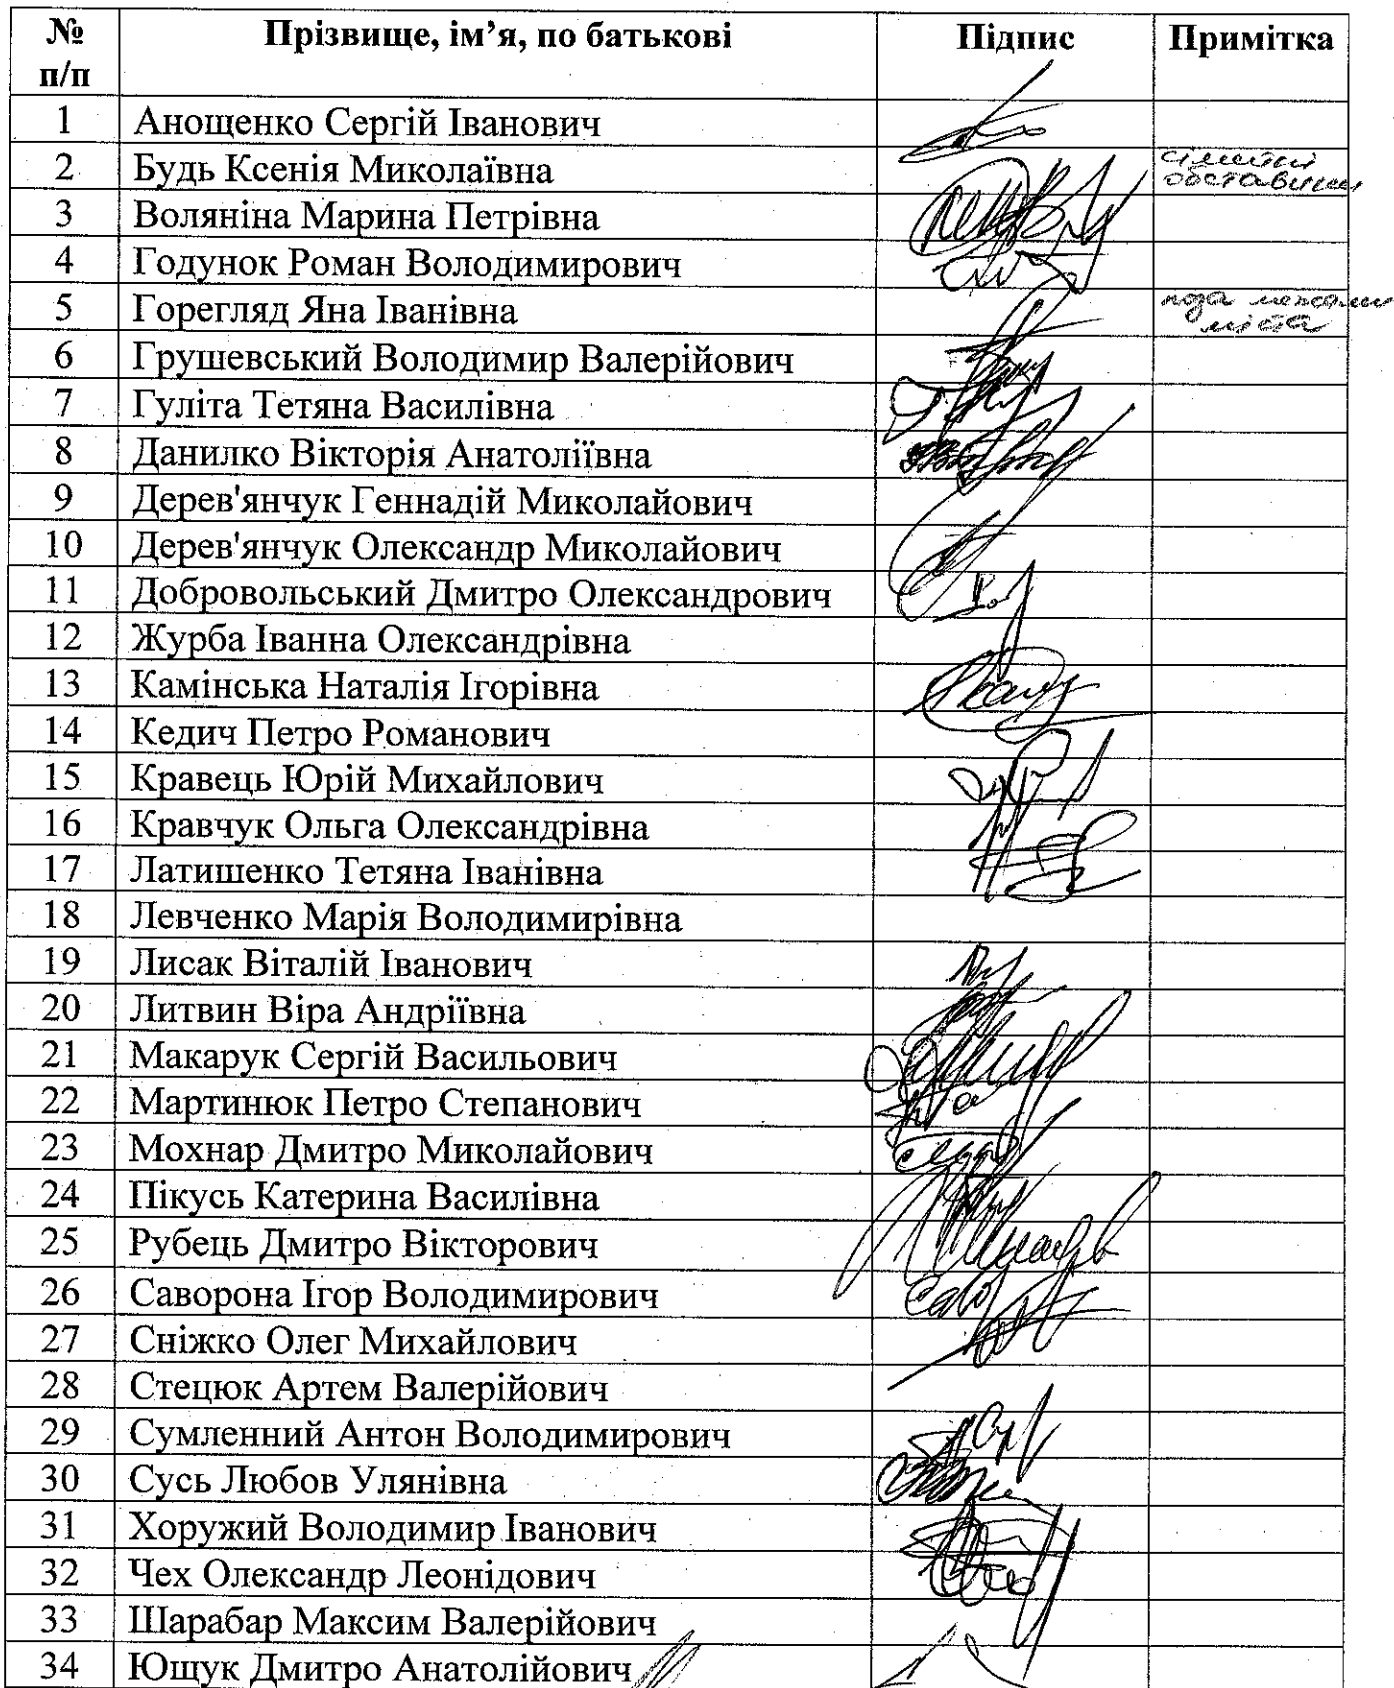 № п/п Прізвище, ім’я, по батькові Підпис Примітка
1 Анощенко Сергій Іванович
2 Будь Ксенія Миколаївна сімейні обставини
3 Воляніна Марина Петрівна
4 Годунок Роман Володимирович
5 Горегляд Яна Іванівна поза межами міста
6 Грушевський Володимир Валерійович
7 Гуліта Тетяна Василівна
8 Данилко Вікторія Анатоліївна
9 Дерев'янчук Геннадій Миколайович
10 Дерев'янчук Олександр Миколайович
11 Добровольський Дмитро Олександрович
12 Журба Іванна Олександрівна
13 Камінська Наталія Ігорівна
14 Кедич Петро Романович
15 Кравець Юрій Михайлович
16 Кравчук Ольга Олександрівна
17 Латишенко Тетяна Іванівна
18 Левченко Марія Володимирівна
19 Лисак Віталій Іванович
20 Литвин Віра Андріївна
21 Макарук Сергій Васильович
22 Мартинюк Петро Степанович
23 Мохнар Дмитро Миколайович
24 Пікусь Катерина Василівна
25 Рубець Дмитро Вікторович
26 Саворона Ігор Володимирович
27 Сніжко Олег Михайлович
28 Стецюк Артем Валерійович
29 Сумленний Антон Володимирович
30 Сусь Любов Улянівна
31 Хоружий Володимир Іванович
32 Чех Олександр Леонідович
33 Шарабар Максим Валерійович
34 Ющук Дмитро Анатолійович